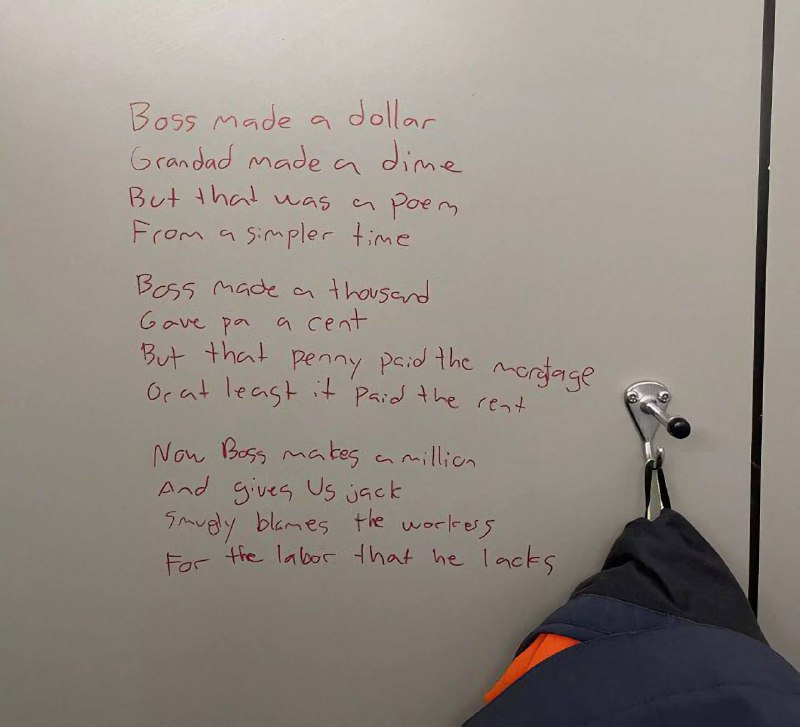 Boss made a dollar
Grandad made a dime
But that was a poem
From a simpler time
Boss made a thousand
Gave pa a cent
But that penny paid the mortgage
Or at least it paid the rent
Now Boss makes a million
And gives us jack
Smugly blames the workers
For the labor that he lacks